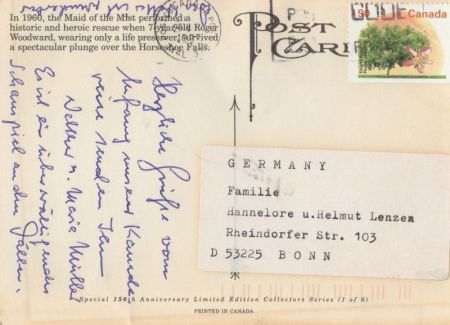 In 1960, the Maid of the Mist performed a
historic and heroic rescue when 7-year-old Roger
Woodward, wearing only a life preserver, survived
a spectacular plunge over the Horseshoe Falls.
POST
CARD
CODE
.90 Canada
Herzliche Grüße vom
Anfang unserer Kanada
reise senden Ihnen
Detlev u. Marie Müller
Es ist ein überwältigendes
Schauspiel an den Fällen.
GERMANY
Familie
Hannelore u.Helmut Lenzen
Rheindorfer Str. 103
D 53225 BONN
Special 150th Anniversary Limited Edition Collectors Series (1 of 6)
PRINTED IN CANADA